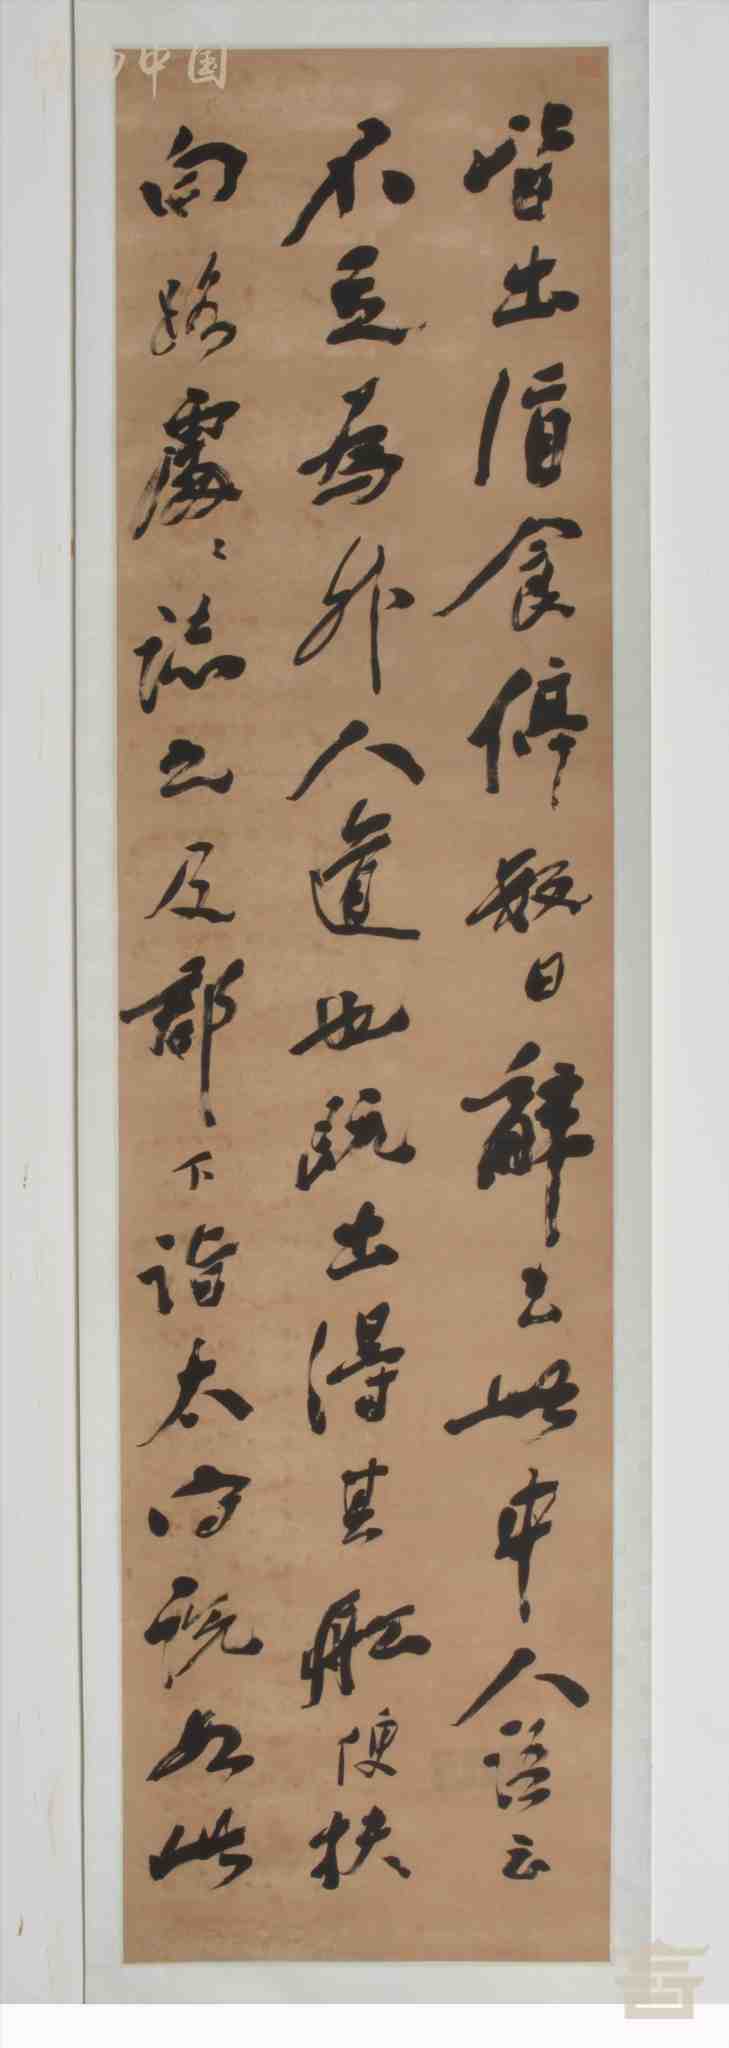 皆出酒食停數日辭去此中人語云
不足為外人道也既出得其舡便扶
向路處〻誌之及郡下詣太守說如此
中国